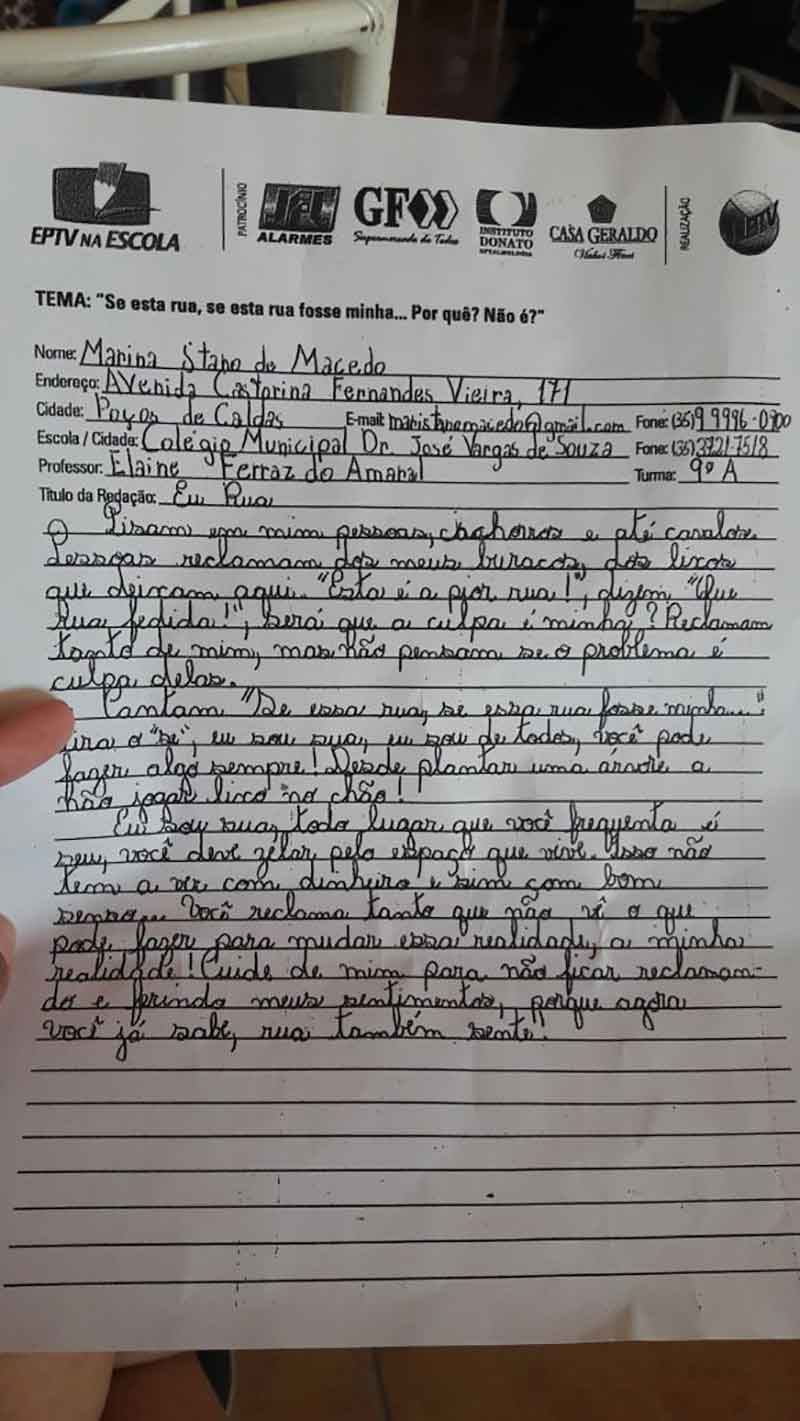 EPTV NA ESCOLA
PATROCÍNIO
ALARMES
GF
Supermercado de Todos
INSTITUTO
DONATO
OFTALMOLOGIA
CASA GERALDO
REALIZAÇÃO
EPTV
TEMA: "Se esta rua, se esta rua fosse minha... Por quê? Não é?"
Nome: Marina Stano de Macedo
Endereço: Avenida Castorina Fernandes Vieira, 171
Cidade: Poços de Caldas E-mail: @gmail.com Fone: (35)
Escola / Cidade: Colégio Municipal Dr. José Vargas de Souza Fone: (35) 3721-7518
Professor: Elaine Ferraz do Amaral Turma: 9º A
Título da Redação: Eu Rua
Pisam em mim pessoas, cachorros e até cavalos.
Pessoas reclamam dos meus buracos, dos lixos
que deixam aqui. "Esta é a pior rua!", dizem "Que
rua fedida!", será que a culpa é minha? Reclamam
tanto de mim, mas não pensam se o problema é
culpa delas.
Cantam "Se essa rua, se essa rua fosse minha...".
Tira o "se", eu sou sua, eu sou de todos, você pode
fazer algo sempre! Desde plantar uma árvore a
não jogar lixo no chão!
Eu sou sua, todo lugar que você frequenta é
seu, você deve zelar pelo espaço que vive. Isso não
tem a ver com dinheiro e sim com bom
senso... Você reclama tanto que não vê o que
pode fazer para mudar essa realidade, a minha
realidade! Cuide de mim para não ficar reclaman-
do e ferindo meus sentimentos, porque agora
você já sabe, rua também sente!